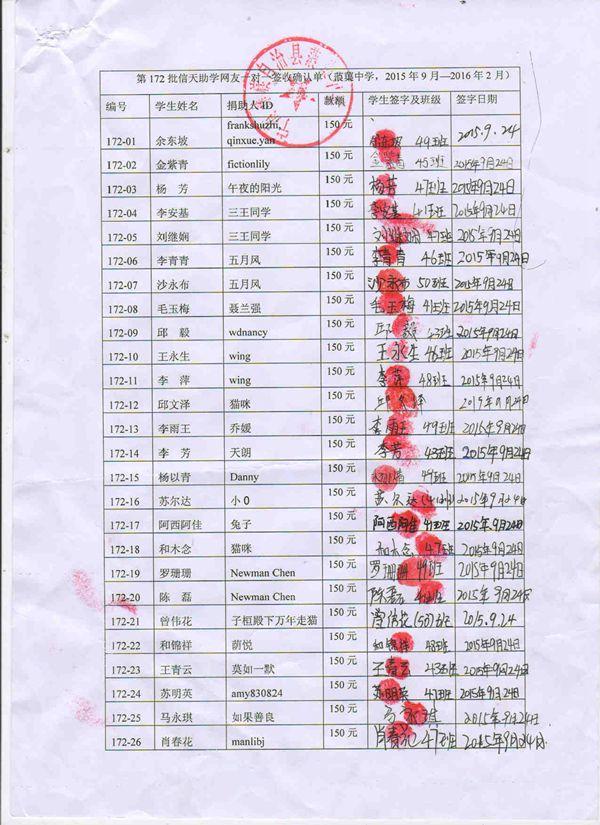 第 172 批信天助学网友一对一签收确认单（蕻蕖中学，2015 年 9 月—2016 年 2 月）
编号 学生姓名 捐助人 ID 款额 学生签字及班级 签字日期
172-01 余东坡 frankshuzhi, qinxue,yan 150 元 余东坡 49班 2015.9.24
172-02 金紫青 fictionlily 150 元 金紫青 45班 2015年9月24日
172-03 杨 芳 午夜的阳光 150 元 杨芳 47班 2015年9月24日
172-04 李安基 三王同学 150 元 李安基 41班 2015年9月24日
172-05 刘继娴 三王同学 150 元 刘继娴 47班 2015年9月24日
172-06 李青青 五月风 150 元 李青青 46班 2015年9月24日
172-07 沙永布 五月风 150 元 沙永布 50班 2015年9月24日
172-08 毛玉梅 聂兰强 150 元 毛玉梅 41班 2015年9月24日
172-09 邱 毅 wdnancy 150 元 邱毅 43班 2015年9月24日
172-10 王永生 wing 150 元 王永生 46班 2015年9月24日
172-11 李 萍 wing 150 元 李萍 48班 2015年9月24日
172-12 邱文泽 猫咪 150 元 2015年9月24日
172-13 李雨王 乔媛 150 元 李雨王 49班 2015年9月24日
172-14 李 芳 天朗 150 元 李芳 43班 2015年9月24日
172-15 杨以青 Danny 150 元 49班 2015年9月24日
172-16 苏尔达 小 0 150 元 苏尔达 2015年9月24日
172-17 阿西阿佳 兔子 150 元 阿西阿佳 41班 2015年9月24日
172-18 和木念 猫咪 150 元 和木念 47班 2015年9月24日
172-19 罗珊珊 Newman Chen 150 元 罗珊珊 49班 2015年9月24日
172-20 陈 磊 Newman Chen 150 元 陈磊 2015年9月24日
172-21 曾伟花 子桓殿下万年走猫 150 元 曾伟花(50)班 2015.9.24
172-22 和锦祥 荫悦 150 元 和锦祥 48班 2015年9月24日
172-23 王青云 莫如一默 150 元 王青云 43班 2015年9月24日
172-24 苏明英 amy830824 150 元 苏明英 47班 2015年9月24日
172-25 马永琪 如果善良 150 元 马 班 2015年9月24日
172-26 肖春花 manlibj 150 元 肖春花 47班 2015年9月24日